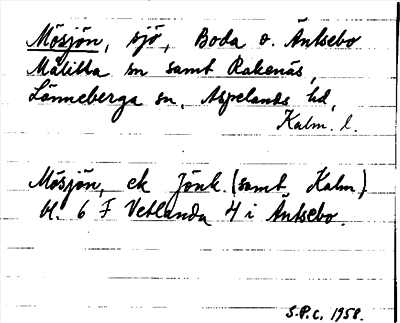 Mösjön, sjö, Boda o. Äntsebo
Målilla sn samt Rakenäs,
Lönneberga sn, Aspelands hd,
Kalm. l.
Mösjön, ek Jönk. (samt Kalm.)
bl. 6 F Vetlanda 4 i Äntsebo.
S.P.C. 1958.